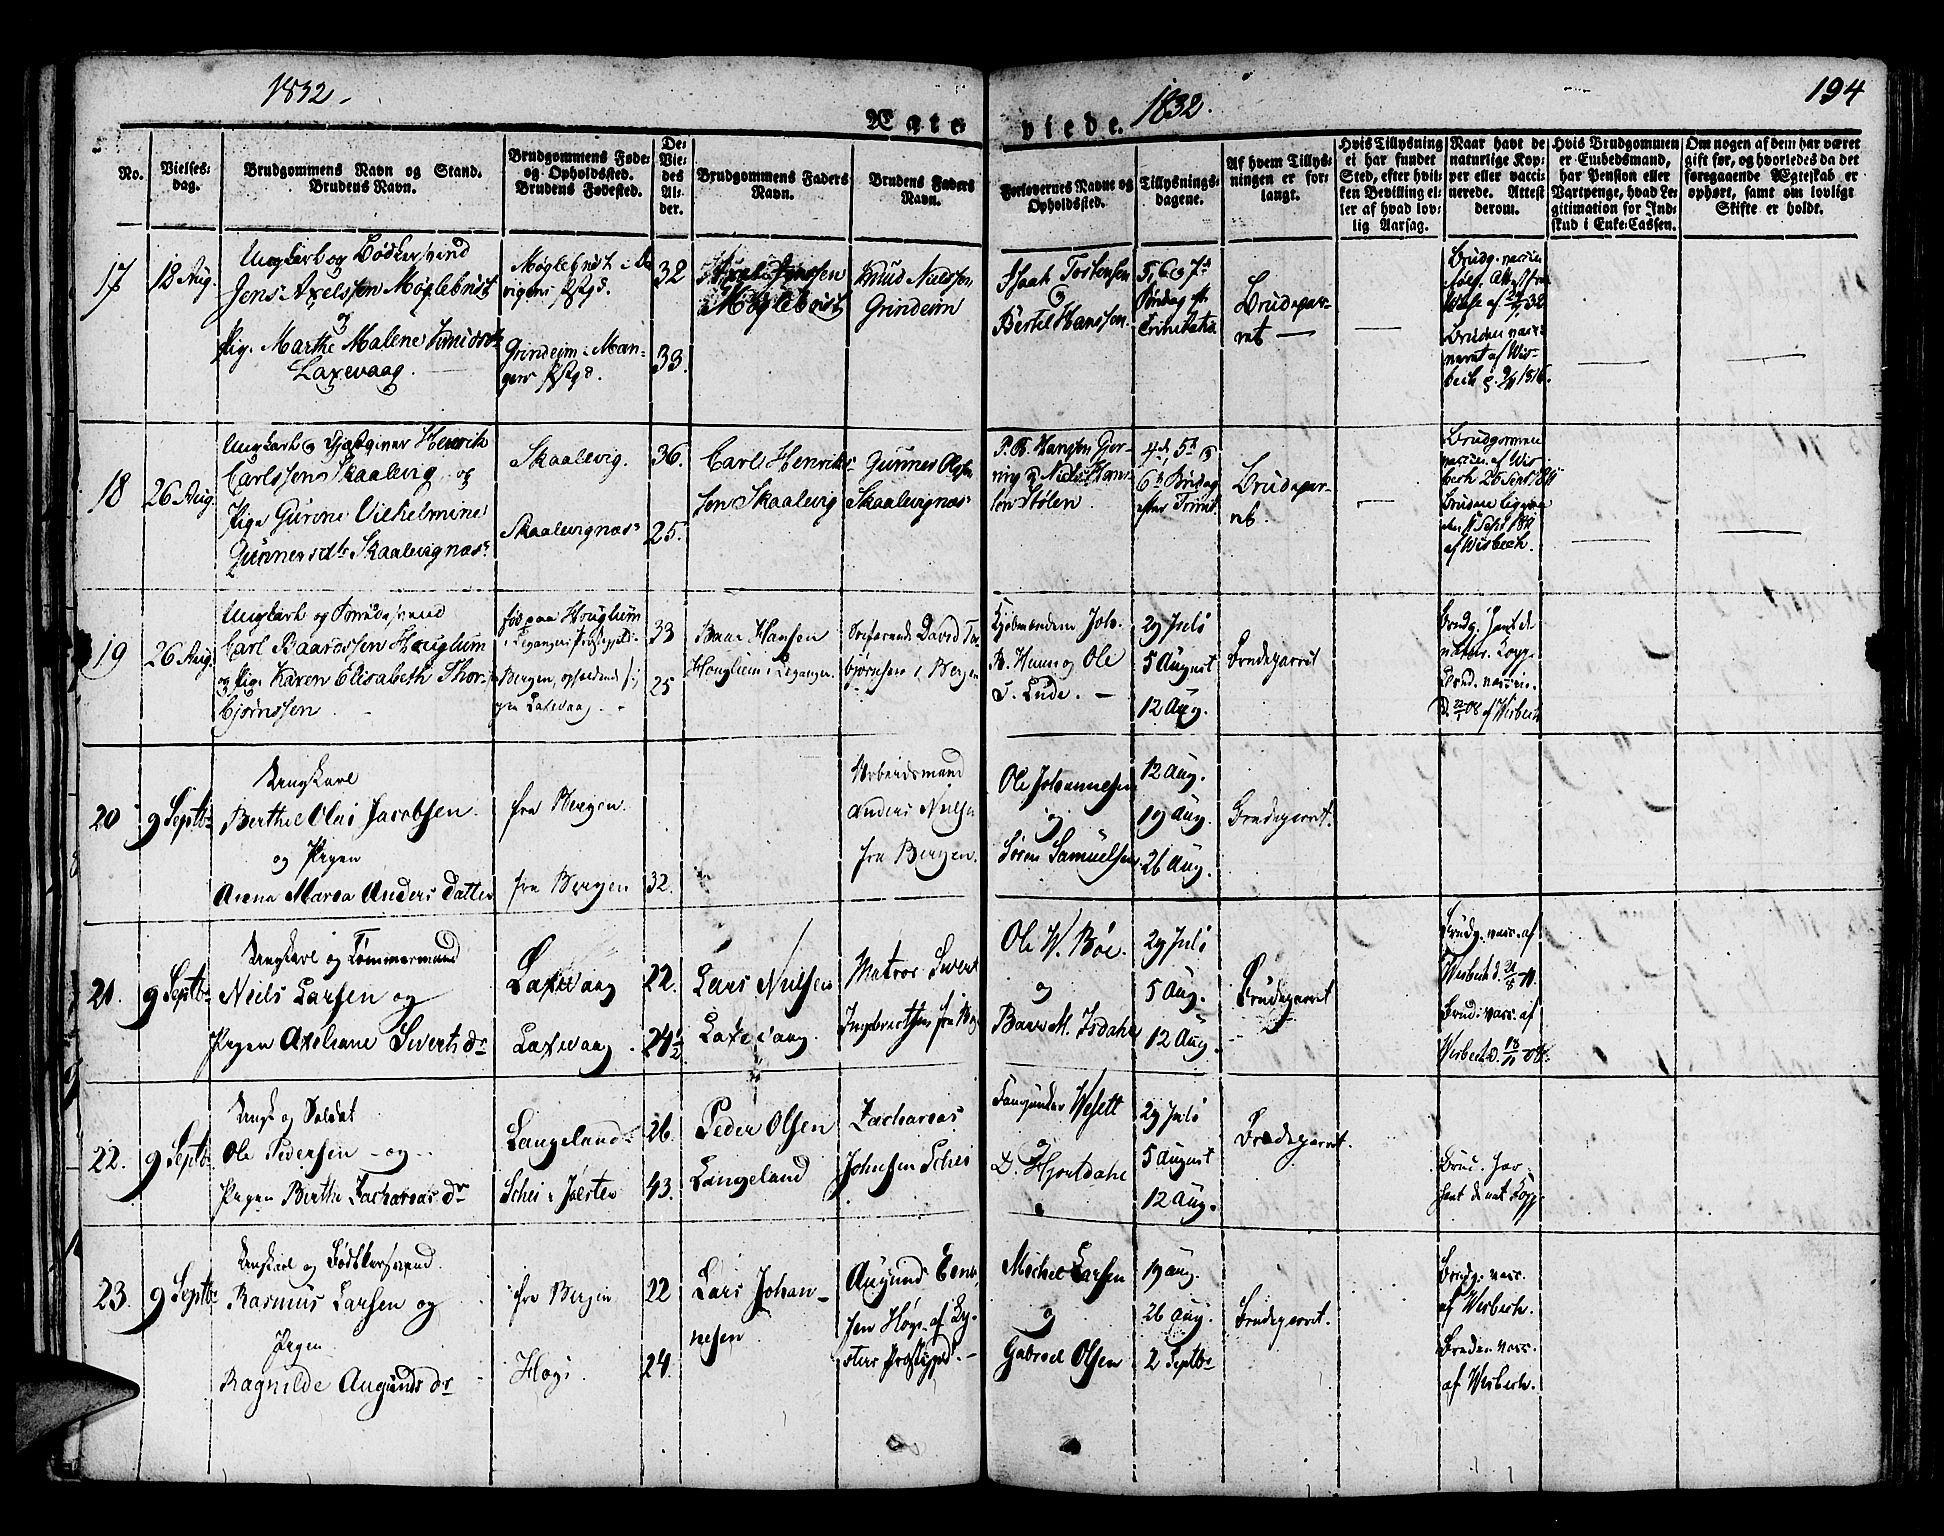 1832.
Ægte
viede.
1832.
194
No.
Vielses-
dag.
Brudgommens Navn og Stand.
Brudens Navn.
Brudgommens Føde-
og Opholdssted.
Brudens Fødested.
De
Vie-
des
Al-
der.
Brudgommens Faders
Navn.
Brudens Faders
Navn.
Forlovernes Navne og
Opholdssted.
Tillysnings-
dagene.
Af hvem Tillys-
ningen er for-
langt.
Hvis Tillysning
ei har fundet
Sted, efter hvil-
ken Bevilling el-
ler af hvad lov-
lig Aarsag.
Naar havt de
naturlige Kop-
per eller vacci-
nerede. Attest
derom.
Hvis Brudgommen
er Embedsmand,
har Pension eller
Vartpenge, hvad Le-
gitimation for Ind-
skud i Enke-Cassen.
Om nogen af dem har været
gift før, og hvorledes da det
foregaaende Ægteskab er
ophørt, samt om lovligt
Skifte er holdt.
17
18 Aug.
Ungkarl og Bødkersvend
Jens Axelssen Møglebust
og
Pige Marthe Malene Knudsdr
Laxevaag.
Møglebust i
Grindeim i Man-
gers
32
33.
Axel Jenssen
Møglebust
Knud Nielssen
Grindeim
Isaak Torstensen
&
Bertel Hanssen.
5, 6 & 7de
Søndag eft.
Trinitatis
Brudepar-
ret
Brudg. vaccin
Bruden vacci-
neret af Wis-
bech 1816.
18
26 Aug.
Ungkarl og Henrik
Carlssen Skaalevig og
Pige Gurine Vilhelmine
Gunnersdtr Skaalevignæs
Skaalevig.
Skaalevignæs
36.
25.
Carl Henrik-
sen Skaalevig
Gunner Olsen
Skaalevignæs
P. Hansen Gjer-
ning & Niels Han-
sen Stølen.
4de, 5te &
6te Søndag
efter Trinit.
Brudepar-
ret.
Brudgommen
vaccin. af Wis-
bech 26 Sept.
Brudens ligesaa
af Wisbech.
19
26 Aug.
Ungkarl og
Carl Baardssen Houglum
og Pige Karen Elisabeth Thor-
bjørnssen
fød paa Houglum
i Leganger Præstegjeld
Bergen,
Laxevaag
33
25
Baar Hansen
Houglum i Leganger.
David Tor-
bjørnsen i Bergen
Kjøbmændene Joh.
B. Hunn og Ole
T. Lude.
29 Juli
5 August
12 Aug.
Brudeparret
Brudg. havt de
natur. Kopp.
Brud. vaccin.
af Wisbech
20
9 Septbr
Ungkarl
Berthel Olai Jacobsen
og Pigen
Anna Maria Anders datter
fra Bergen.
fra Bergen
32.
Arbeidsmand
Anders Nielsen
fra Bergen.
Ole Johannesen
og
Søren Samuelsen
12 Aug.
19 Aug.
26 Aug.
Brudeparret.
21.
9 Septbr
Ungkarl og Tømmermand
Niels Larsen og
Pigen Axeliane Siverts dr
Laxevaag
Laxevaag.
22.
24½
Lars Nielsen
Laxevaag.
Matros Sivert
Ingebrectsen fra Bg
Ole W. Bøe.
og
Baar M. Isdahl
29 Juli
5 Aug.
12 Aug.
Brudeparret
Brudg. vacc. af
Wisbech d.
Brud. vacc. af
Wisbech d.
22.
9 Septbr
Ungk. og Soldat
Ole Pedersen og
Pigen Berthe Zacharias dr
Langeland
Schei i Jølster
26.
43.
Peder Olsen
Langeland
Zacharias
Johnsen Schei
Wefelt
&
D. Hjortdahl
29 Juli
5 August
12 Aug.
Brudeparret.
Brud. har
havt d. nat. Kopp.
23.
9 Septbr
Ungkarl og Bødkersvend
Rasmus Larsen og
Pigen
Ragnilde Augunds dr
fra Bergen
Høgi
22
24.
Lars Johan-
nesen
Augund Een-
sen Høgi af Ly-
ster Præstegjeld.
Michel Larsen
og
Gabriel Olsen
19 Aug.
26 Aug.
2 Septbr
Brudeparret.
Brudg. vacc.
af Wisbech.
Bruden vacc.
af Wisbech.